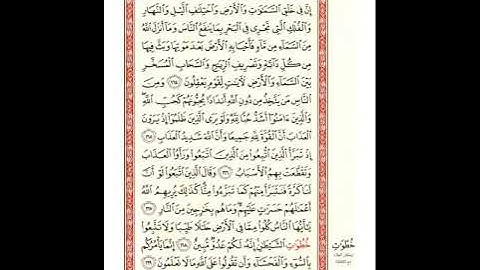 إِنَّ فِي خَلْقِ السَّمَٰوَٰتِ وَالْأَرْضِ وَاخْتِلَٰفِ الَّيْلِ وَالنَّهَارِ
وَالْفُلْكِ الَّتِي تَجْرِي فِي الْبَحْرِ بِمَا يَنفَعُ النَّاسَ وَمَا أَنزَلَ اللَّهُ
مِنَ السَّمَاءِ مِن مَّاءٍ فَأَحْيَا بِهِ الْأَرْضَ بَعْدَ مَوْتِهَا وَبَثَّ فِيهَا
مِن كُلِّ دَابَّةٍ وَتَصْرِيفِ الرِّيَٰحِ وَالسَّحَابِ الْمُسَخَّرِ
بَيْنَ السَّمَاءِ وَالْأَرْضِ لَآيَٰتٍ لِّقَوْمٍ يَعْقِلُونَ وَمِنَ
النَّاسِ مَن يَتَّخِذُ مِن دُونِ اللَّهِ أَندَادًا يُحِبُّونَهُمْ كَحُبِّ اللَّهِ
وَالَّذِينَ ءَامَنُوا أَشَدُّ حُبًّا لِّلَّهِ وَلَوْ يَرَى الَّذِينَ ظَلَمُوا إِذْ يَرَوْنَ
الْعَذَابَ أَنَّ الْقُوَّةَ لِلَّهِ جَمِيعًا وَأَنَّ اللَّهَ شَدِيدُ الْعَذَابِ
إِذْ تَبَرَّأَ الَّذِينَ اتُّبِعُوا مِنَ الَّذِينَ اتَّبَعُوا وَرَأَوُا الْعَذَابَ
وَتَقَطَّعَتْ بِهِمُ الْأَسْبَابُ وَقَالَ الَّذِينَ اتَّبَعُوا لَوْ أَنَّ
لَنَا كَرَّةً فَنَتَبَرَّأَ مِنْهُمْ كَمَا تَبَرَّءُوا مِنَّا كَذَٰلِكَ يُرِيهِمُ اللَّهُ
أَعْمَٰلَهُمْ حَسَرَٰتٍ عَلَيْهِمْ وَمَا هُم بِخَٰرِجِينَ مِنَ النَّارِ
يَٰأَيُّهَا النَّاسُ كُلُوا مِمَّا فِي الْأَرْضِ حَلَٰلًا طَيِّبًا وَلَا تَتَّبِعُوا
خُطُوَٰتِ الشَّيْطَٰنِ إِنَّهُ لَكُمْ عَدُوٌّ مُّبِينٌ إِنَّمَا يَأْمُرُكُم
بِالسُّوءِ وَالْفَحْشَاءِ وَأَن تَقُولُوا عَلَى اللَّهِ مَا لَا تَعْلَمُونَ
خُطُوَٰتِ